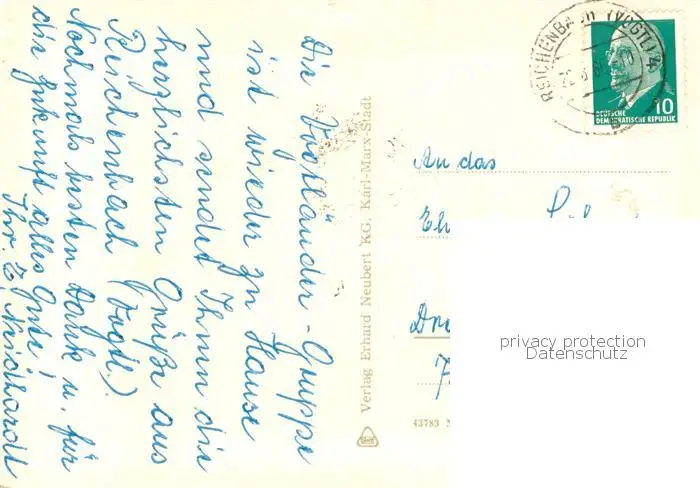 Die Vogtländer-Gruppe
ist wieder zu Hause
und sendet Ihnen die
herzlichsten Grüße aus
Reichenbach (Vogtl).
Nochmals besten Dank u. für
die Zukunft alles Gute!
Ihr
Verlag Erhard Neubert KG, Karl-Marx-Stadt
REICHENBACH (VOGTL)
10
DEUTSCHE
DEMOKRATISCHE REPUBLIK
An das
43783
privacy protection
Datenschutz